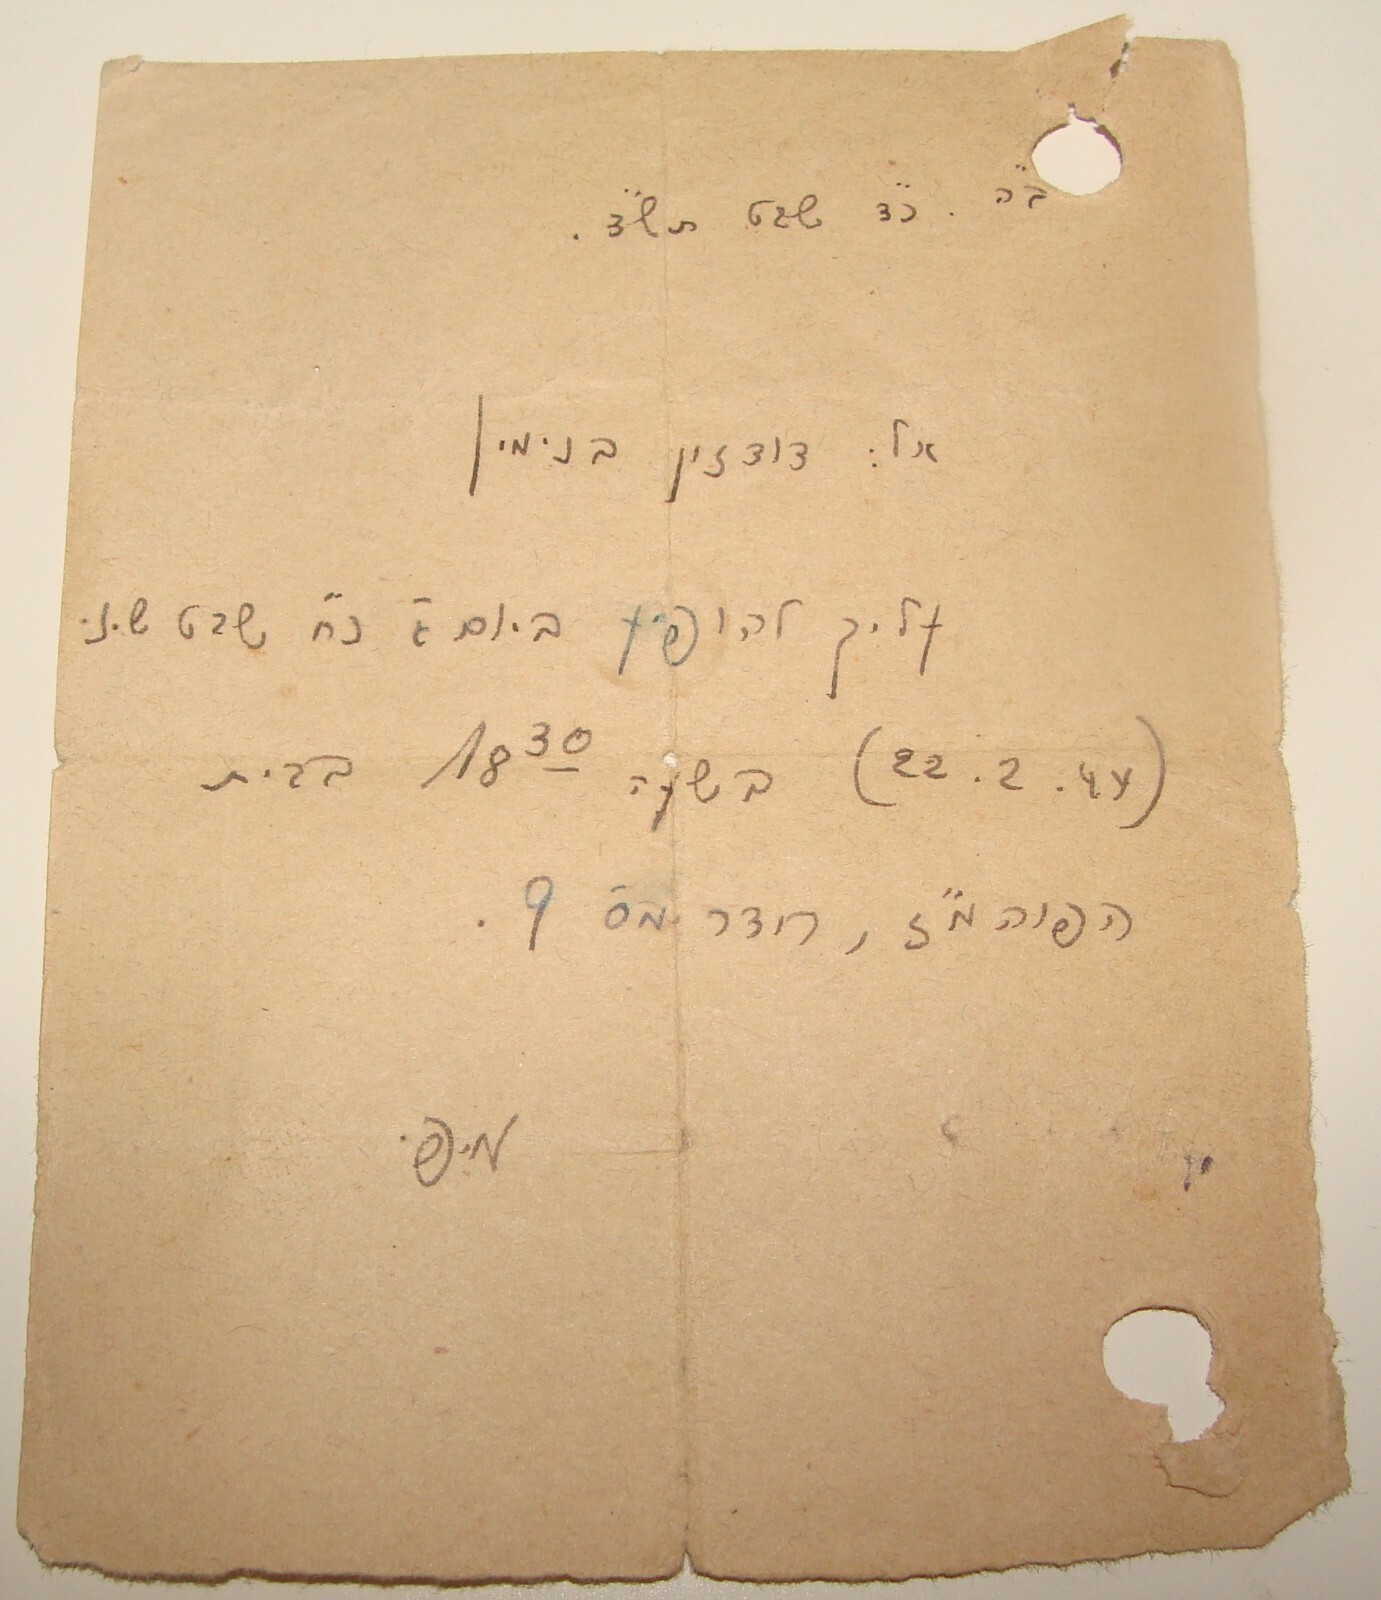 ב"ה. כ"ד שבט תש"ד.
אל: דודזון בנימין
עליך להופיע ביום ג' כ"ח שבט ש.ז.
(22.2.44) בשעה 18³⁰ בבית
הפוהמ"ז, חדר מס' 9.